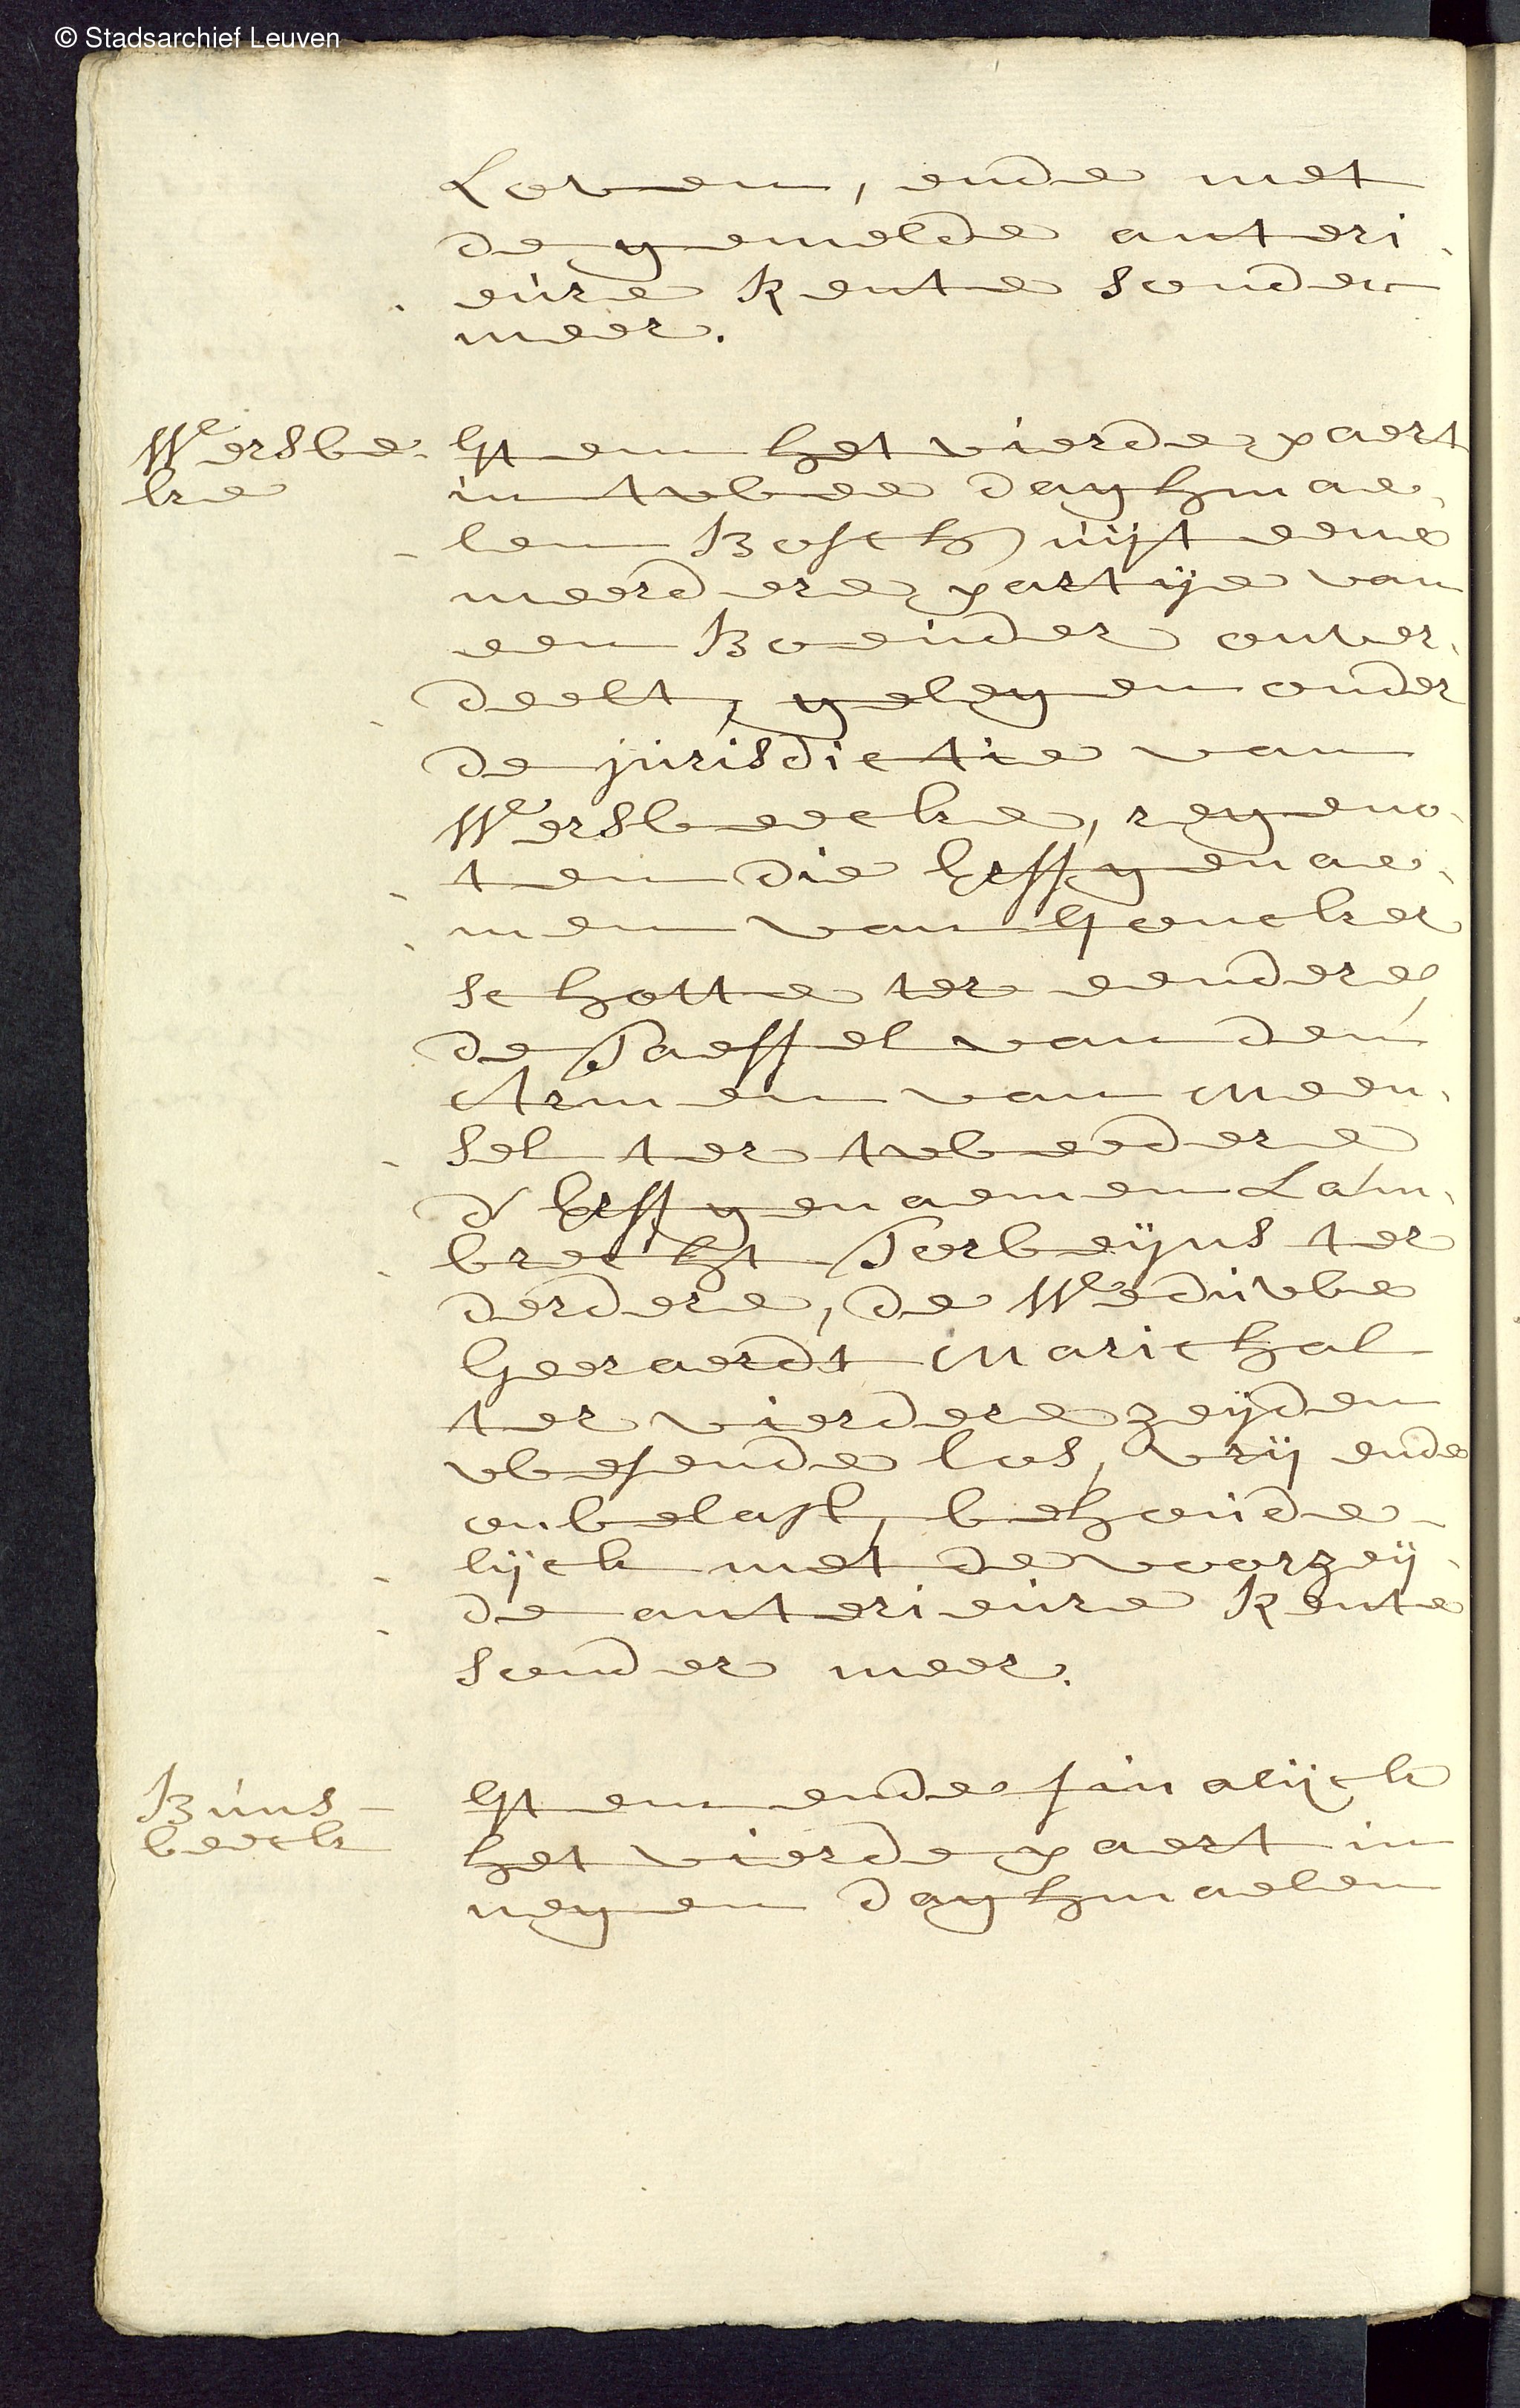 © Stadsarchief Leuven
Loven, ende met
de gemelde anteri-
-eure Rente sonder
meer.
Wersbe- Item het vierde paert
ke in twee daghmae-
-len Bosch uijt eene
meerdere partije van
een Boender onver-
deelt, gelegen onder
-de jurisdictie van
Wersbeecke, regeno-
-ten die Erffgenae-
-men van Joncker
Schotte ter eendere,
de Taeffel van den
Armen van Meen-
-sel ter tweedere
d'Erffgenaemen Lam-
-brecht Torbeijns ter
derdere, de Weduwe
Geeraerdt Marichal
ter vierdere zeijden
wesende los, vrij ende
onbelast, behoude-
-lijck met de voorzeij-
-de anterieure Rente
sonder meer.
Buns- Item ende finalijck
beeck het vierde paert in
negen daghmaelen